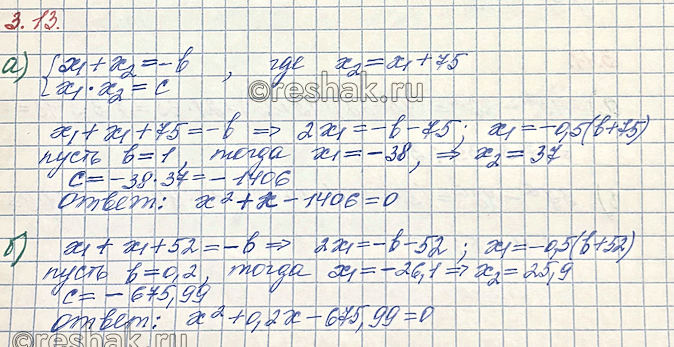 3.13.
а) { x₁ + x₂ = -b , где x₂ = x₁ + 75
{ x₁ · x₂ = c
©reshak.ru
x₁ + x₁ + 75 = -b ⇒ 2x₁ = -b - 75; x₁ = -0,5(b+75)
пусть b = 1, тогда x₁ = -38, ⇒ x₂ = 37
c = -38·37 = -1406
ответ: x² + x - 1406 = 0
б) x₁ + x₁ + 52 = -b ⇒ 2x₁ = -b - 52 ; x₁ = -0,5(b+52)
пусть b = 0,2, тогда x₁ = -26,1 ⇒ x₂ = 25,9
c = - 675,99
ответ: x² + 0,2x - 675,99 = 0
©reshak.ru